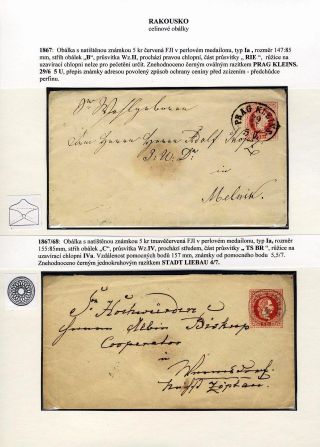 RAKOUSKO
celinové obálky
1867: Obálka s natištěnou známkou 5 kr červená FJI v perlovém medailonu, typ Ia, rozměr 147:85
mm, střih obálek „B", průsvitka Wz.II, prochází pravou chlopní, část průsvitky „ RIE ", růžice na
uzavírací chlopni nelze pro pečetění určit. Znehodnoceno černým oválným razítkem PRAG KLEINS.
29/6 5 U, přepis známky adresou povolený způsob ochrany ceniny před zcizením - předchůdce
perfinu.
PRAG KLEINS.
Sr Wohlgeboren
Herrn Herrn Rudolf
J. U. Dr
in
Melnik
1867/68: Obálka s natištěnou známkou 5 kr tmavočervená FJI v perlovém medailonu, typ Ia, rozměr
155:85mm, střih obálek „C", průsvitka Wz.IV, prochází středem, část průsvitky „ TS BR ", růžice na
uzavírací chlopni IVa. Vzdálenost pomocných bodů 157 mm, známky od pomocného bodu 5,5/7.
Znehodnoceno černým jednokruhovým razítkem STADT LIEBAU 4/7.
Sr Hochwürden
Herrn Albin Biskup
Cooperator
in